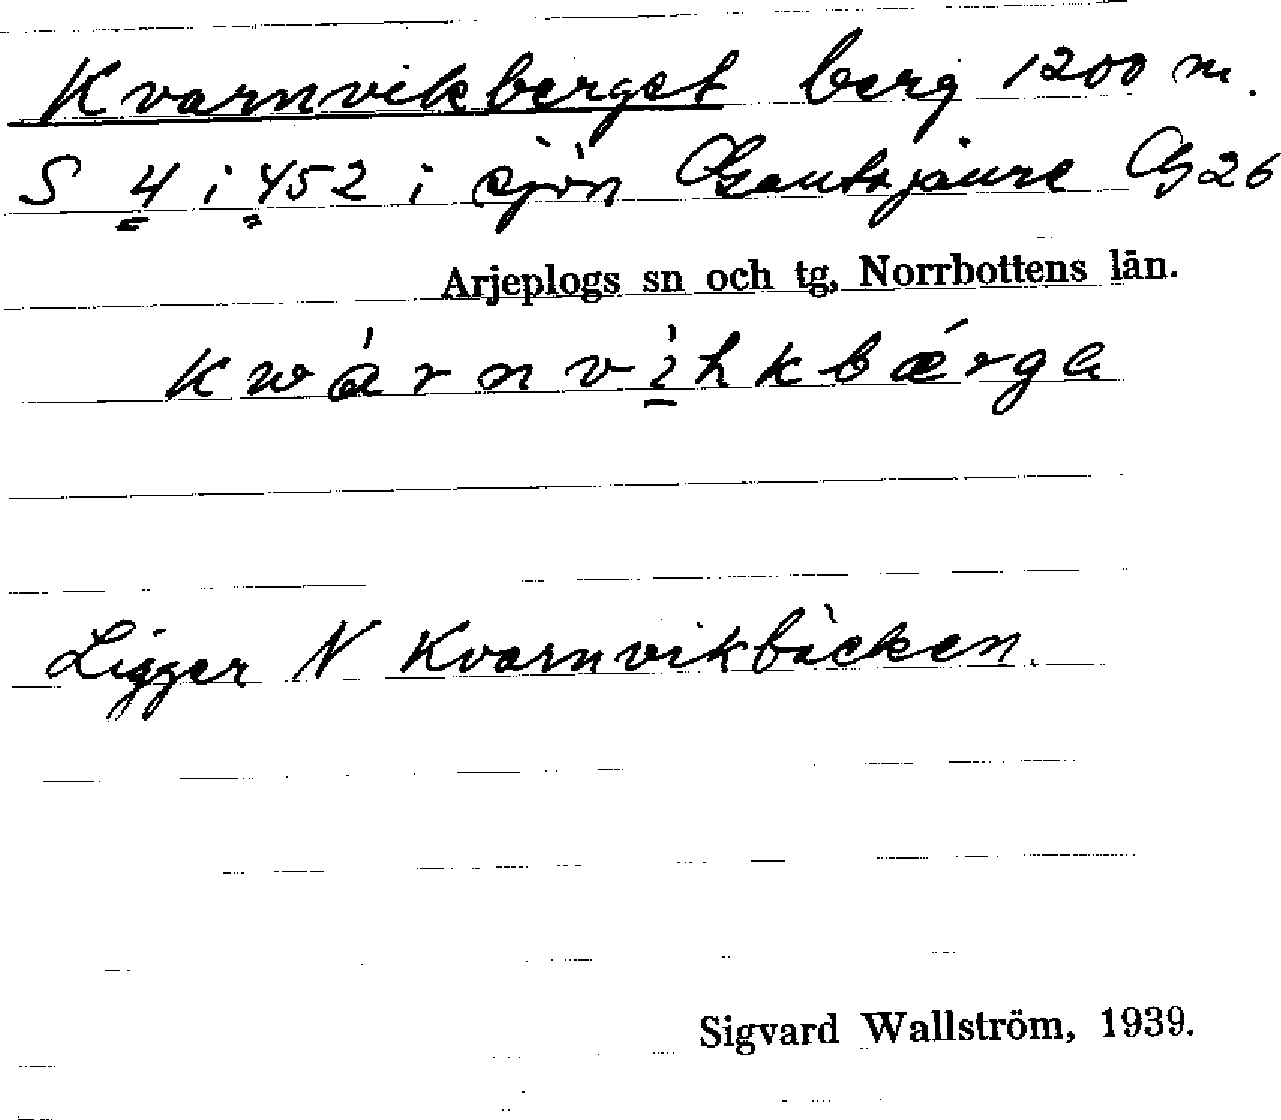 Kvarnvikberget berg 1200 m.
S 4 i 452 i sjön Gautojaure Bj 26
Arjeplogs sn och tg, Norrbottens län.
kwàrnvìhkbǽrga
Ligger N Kvarnvikbäcken.
Sigvard Wallström, 1939.